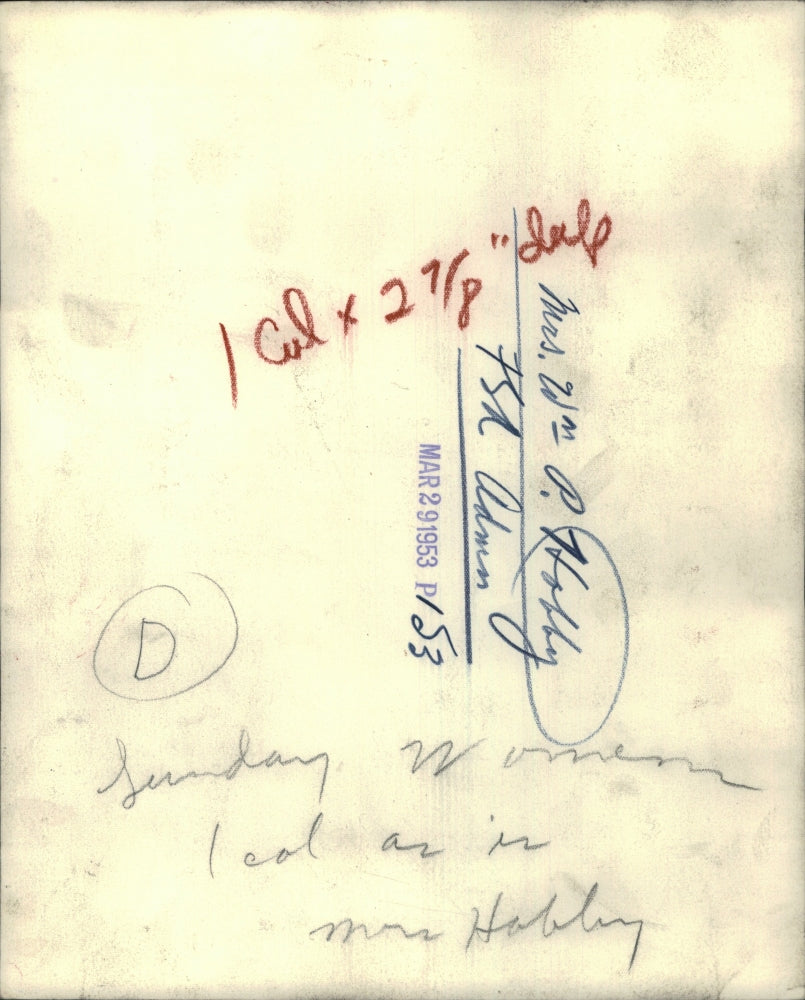 1 Col x 2 7/8" deep
Mrs. Wm P. Hobby
FSA Admin
MAR 29 1953 P
153
D
Sunday Women
1 col as is
Mrs Hobby